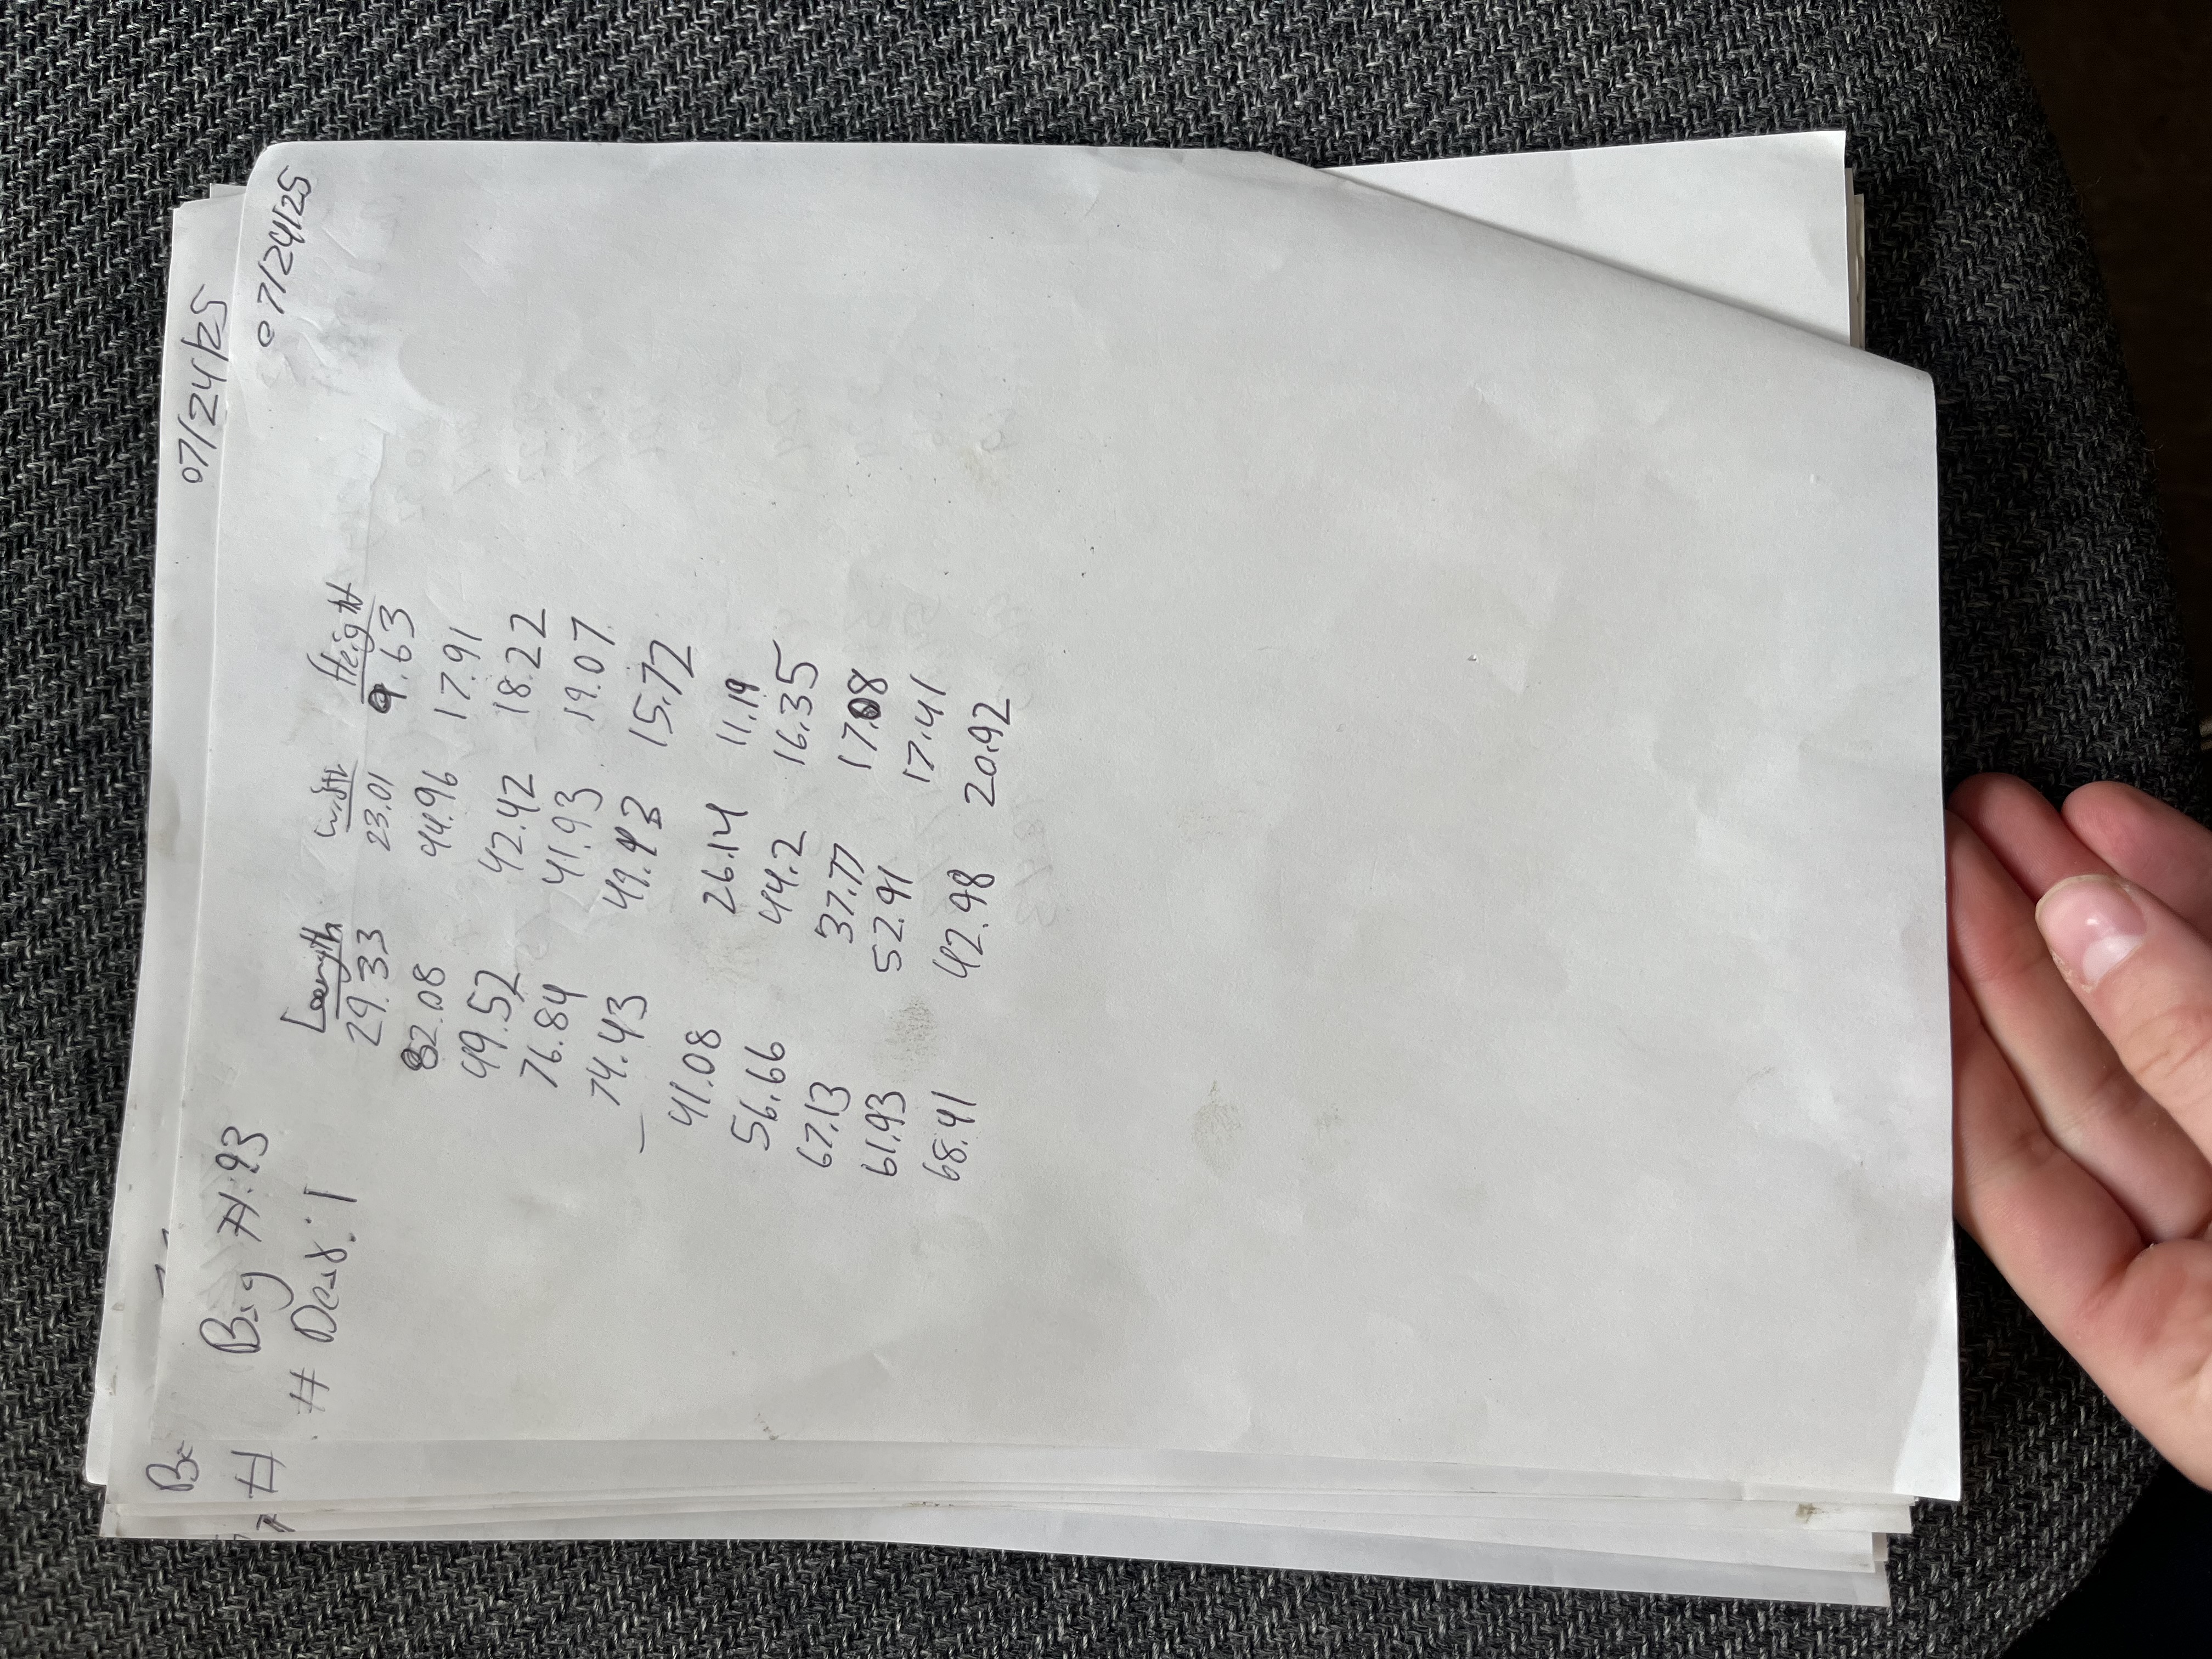 07/24/25
07/24/25
Bag #: 93
# Dead: 1
Length Width Height
29.33 23.01 9.63
82.08 44.96 17.91
49.52 42.42 18.22
76.84 41.93 19.07
74.43 49.43 15.72
41.08 26.14 11.19
56.66 44.2 16.35
67.13 37.77 17.08
61.93 52.91 17.41
68.41 42.98 20.92